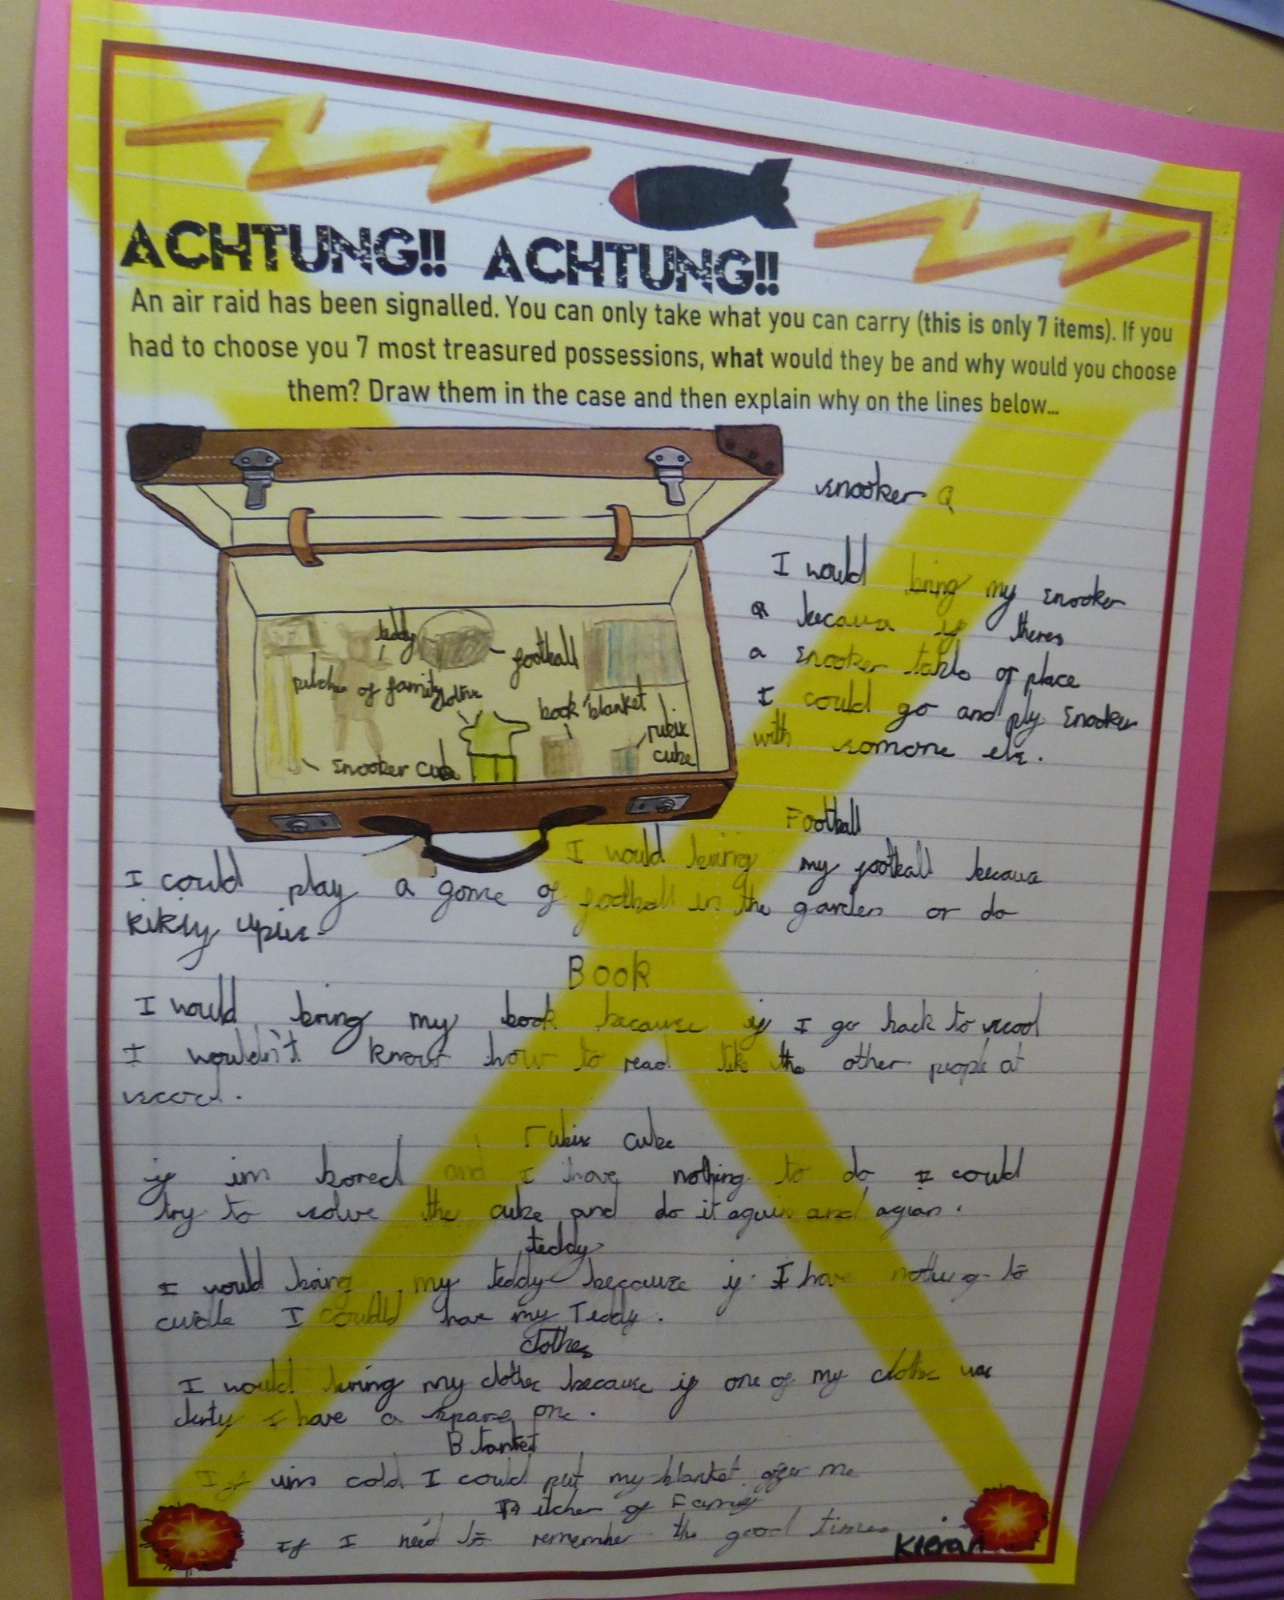 ACHTUNG!! ACHTUNG!!
An air raid has been signalled. You can only take what you can carry (this is only 7 items). If you
had to choose you 7 most treasured possessions, what would they be and why would you choose
them? Draw them in the case and then explain why on the lines below...
teddy
football
of family
book blanket
rubix
cube
snooker cue
snooker Q
I would bring my snooker
Q because if theres
a snooker table or place
I could go and ply snooker
with somone els.
Football
I would bring my football becaus
I could play a game of football in the garden or do
kikty upis.
Book
I would bring my book because if I go back to scool
I wouldn't know how to read like the other peopl at
scool.
rubix cube
if im bored and I have nothing to do I could
try to solve the cube and do it again and agian.
teddy
I would bring my teddy because if I have nothing to
cuddle I could have my Teddy.
clothes
I would bring my clothes because if one of my clothes was
derty I have a spare one.
Blanket
If im cold I could put my blanket over me
of Family
If I need to remember the good times
Kieran